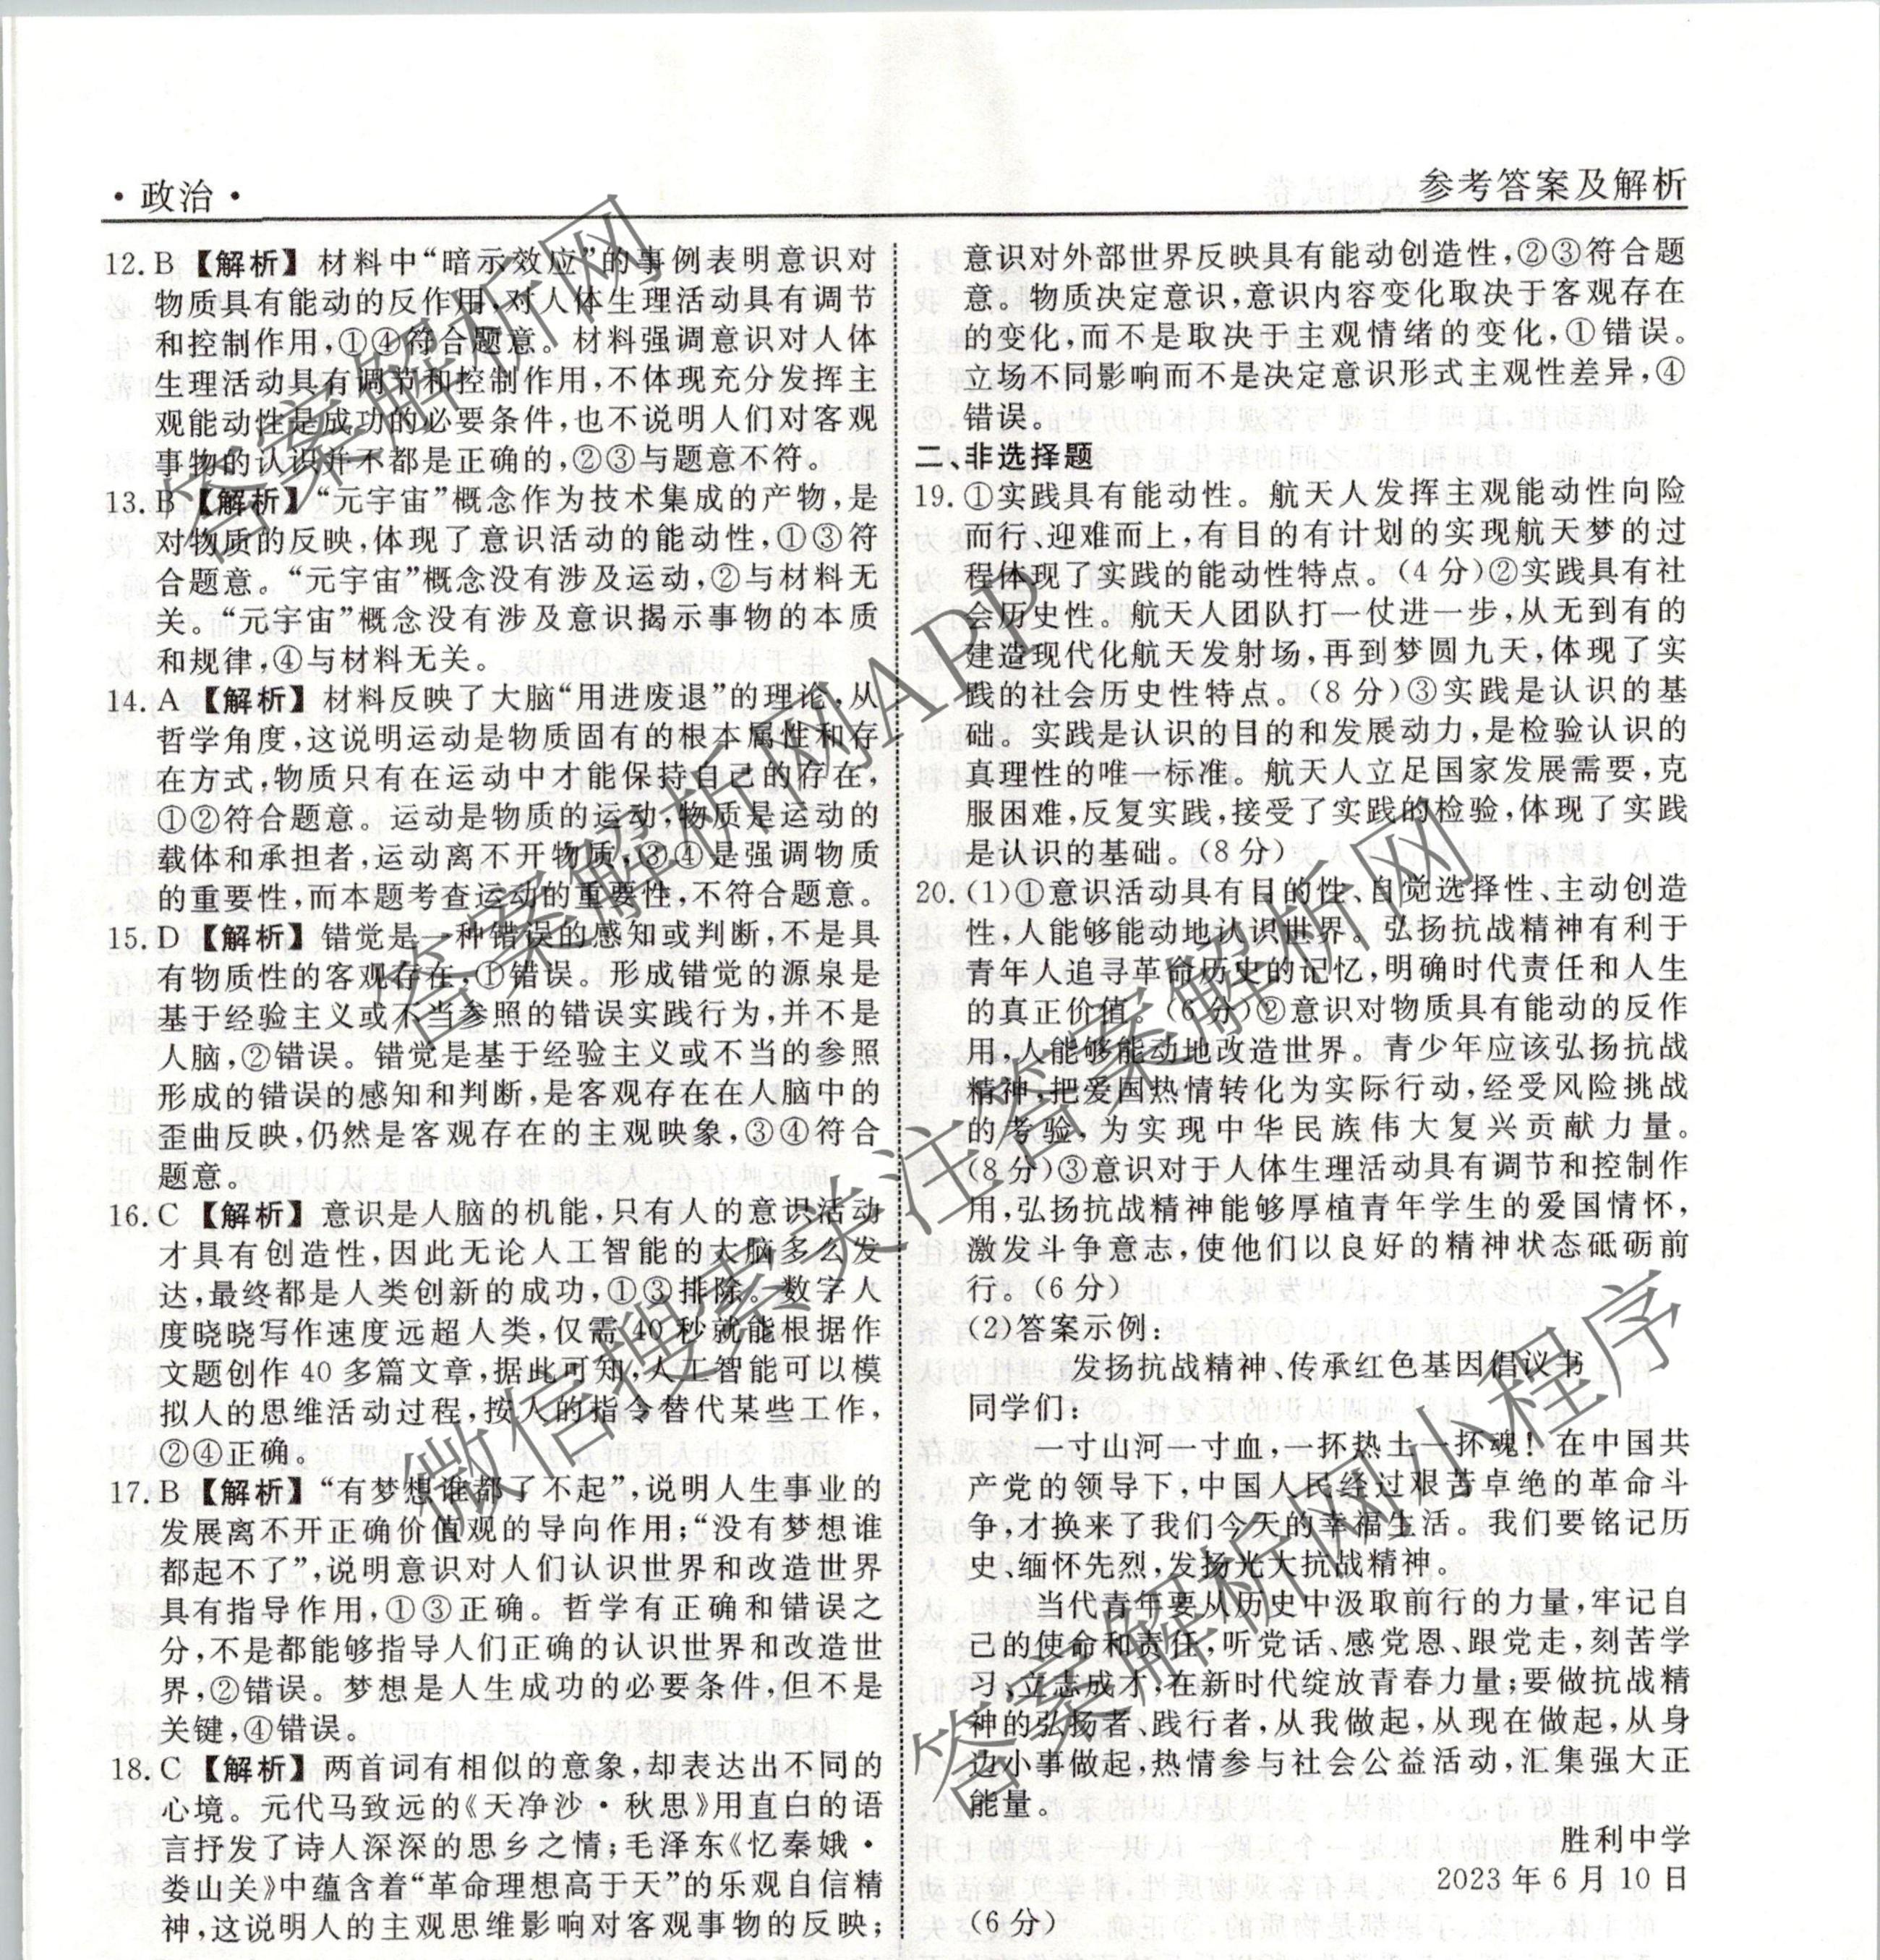 ·政治·
参考答案及解析
12. B 【解析】材料中“暗示效应”的事例表明意识对
物质具有能动的反作用,对人体生理活动具有调节
和控制作用,①④符合题意。材料强调意识对人体
生理活动具有调节和控制作用,不体现充分发挥主
观能动性是成功的必要条件,也不说明人们对客观
事物的认识并不都是正确的,②③与题意不符。
13. B 【解析】“元宇宙”概念作为技术集成的产物,是
对物质的反映,体现了意识活动的能动性,①③符
合题意。“元宇宙”概念没有涉及运动,②与材料无
关。“元宇宙”概念没有涉及意识揭示事物的本质
和规律,④与材料无关。
14. A 【解析】材料反映了大脑“用进废退”的理论,从
哲学角度,这说明运动是物质固有的根本属性和存
在方式,物质只有在运动中才能保持自己的存在,
①②符合题意。运动是物质的运动,物质是运动的
载体和承担者,运动离不开物质,③④是强调物质
的重要性,而本题考查运动的重要性,不符合题意。
15. D 【解析】错觉是一种错误的感知或判断,不是具
有物质性的客观存在,①错误。形成错觉的源泉是
基于经验主义或不当参照的错误实践行为,并不是
人脑,②错误。错觉是基于经验主义或不当的参照
形成的错误的感知和判断,是客观存在在人脑中的
歪曲反映,仍然是客观存在的主观映象,③④符合
题意。
16. C 【解析】意识是人脑的机能,只有人的意识活动
才具有创造性,因此无论人工智能的大脑多么发
达,最终都是人类创新的成功,①③排除。数字人
度晓晓写作速度远超人类,仅需 40 秒就能根据作
文题创作 40 多篇文章,据此可知,人工智能可以模
拟人的思维活动过程,按人的指令替代某些工作,
②④正确。
17. B 【解析】“有梦想谁都了不起”,说明人生事业的
发展离不开正确价值观的导向作用;“没有梦想谁
都起不了”,说明意识对人们认识世界和改造世界
具有指导作用,①③正确。哲学有正确和错误之
分,不是都能够指导人们正确的认识世界和改造世
界,②错误。梦想是人生成功的必要条件,但不是
关键,④错误。
18. C 【解析】两首词有相似的意象,却表达出不同的
心境。元代马致远的《天净沙·秋思》用直白的语
言抒发了诗人深深的思乡之情;毛泽东《忆秦娥·
娄山关》中蕴含着“革命理想高于天”的乐观自信精
神,这说明人的主观思维影响对客观事物的反映;
意识对外部世界反映具有能动创造性,②③符合题
意。物质决定意识,意识内容变化取决于客观存在
的变化,而不是取决于主观情绪的变化,①错误。
立场不同影响而不是决定意识形式主观性差异,④
错误。
二、非选择题
19. ①实践具有能动性。航天人发挥主观能动性向险
而行、迎难而上,有目的有计划的实现航天梦的过
程体现了实践的能动性特点。(4 分)②实践具有社
会历史性。航天人团队打一仗进一步,从无到有的
建造现代化航天发射场,再到梦圆九天,体现了实
践的社会历史性特点。(8 分)③实践是认识的基
础。实践是认识的目的和发展动力,是检验认识的
真理性的唯一标准。航天人立足国家发展需要,克
服困难,反复实践,接受了实践的检验,体现了实践
是认识的基础。(8 分)
20. (1)①意识活动具有目的性、自觉选择性、主动创造
性,人能够能动地认识世界。弘扬抗战精神有利于
青年人追寻革命历史的记忆,明确时代责任和人生
的真正价值。(6 分)②意识对物质具有能动的反作
用,人能够能动地改造世界。青少年应该弘扬抗战
精神,把爱国热情转化为实际行动,经受风险挑战
的考验,为实现中华民族伟大复兴贡献力量。
(8 分)③意识对于人体生理活动具有调节和控制作
用,弘扬抗战精神能够厚植青年学生的爱国情怀,
激发斗争意志,使他们以良好的精神状态砥砺前
行。(6 分)
(2)答案示例:
发扬抗战精神、传承红色基因倡议书
同学们:
一寸山河一寸血,一抔热土一抔魂!在中国共
产党的领导下,中国人民经过艰苦卓绝的革命斗
争,才换来了我们今天的幸福生活。我们要铭记历
史、缅怀先烈,发扬光大抗战精神。
当代青年要从历史中汲取前行的力量,牢记自
己的使命和责任,听党话、感党恩、跟党走,刻苦学
习,立志成才,在新时代绽放青春力量;要做抗战精
神的弘扬者、践行者,从我做起,从现在做起,从身
边小事做起,热情参与社会公益活动,汇集强大正
能量。
胜利中学
2023 年 6 月 10 日
(6 分)
答案解析网
答案解析网APP
微信搜索关注答案解析网
答案解析网小程序